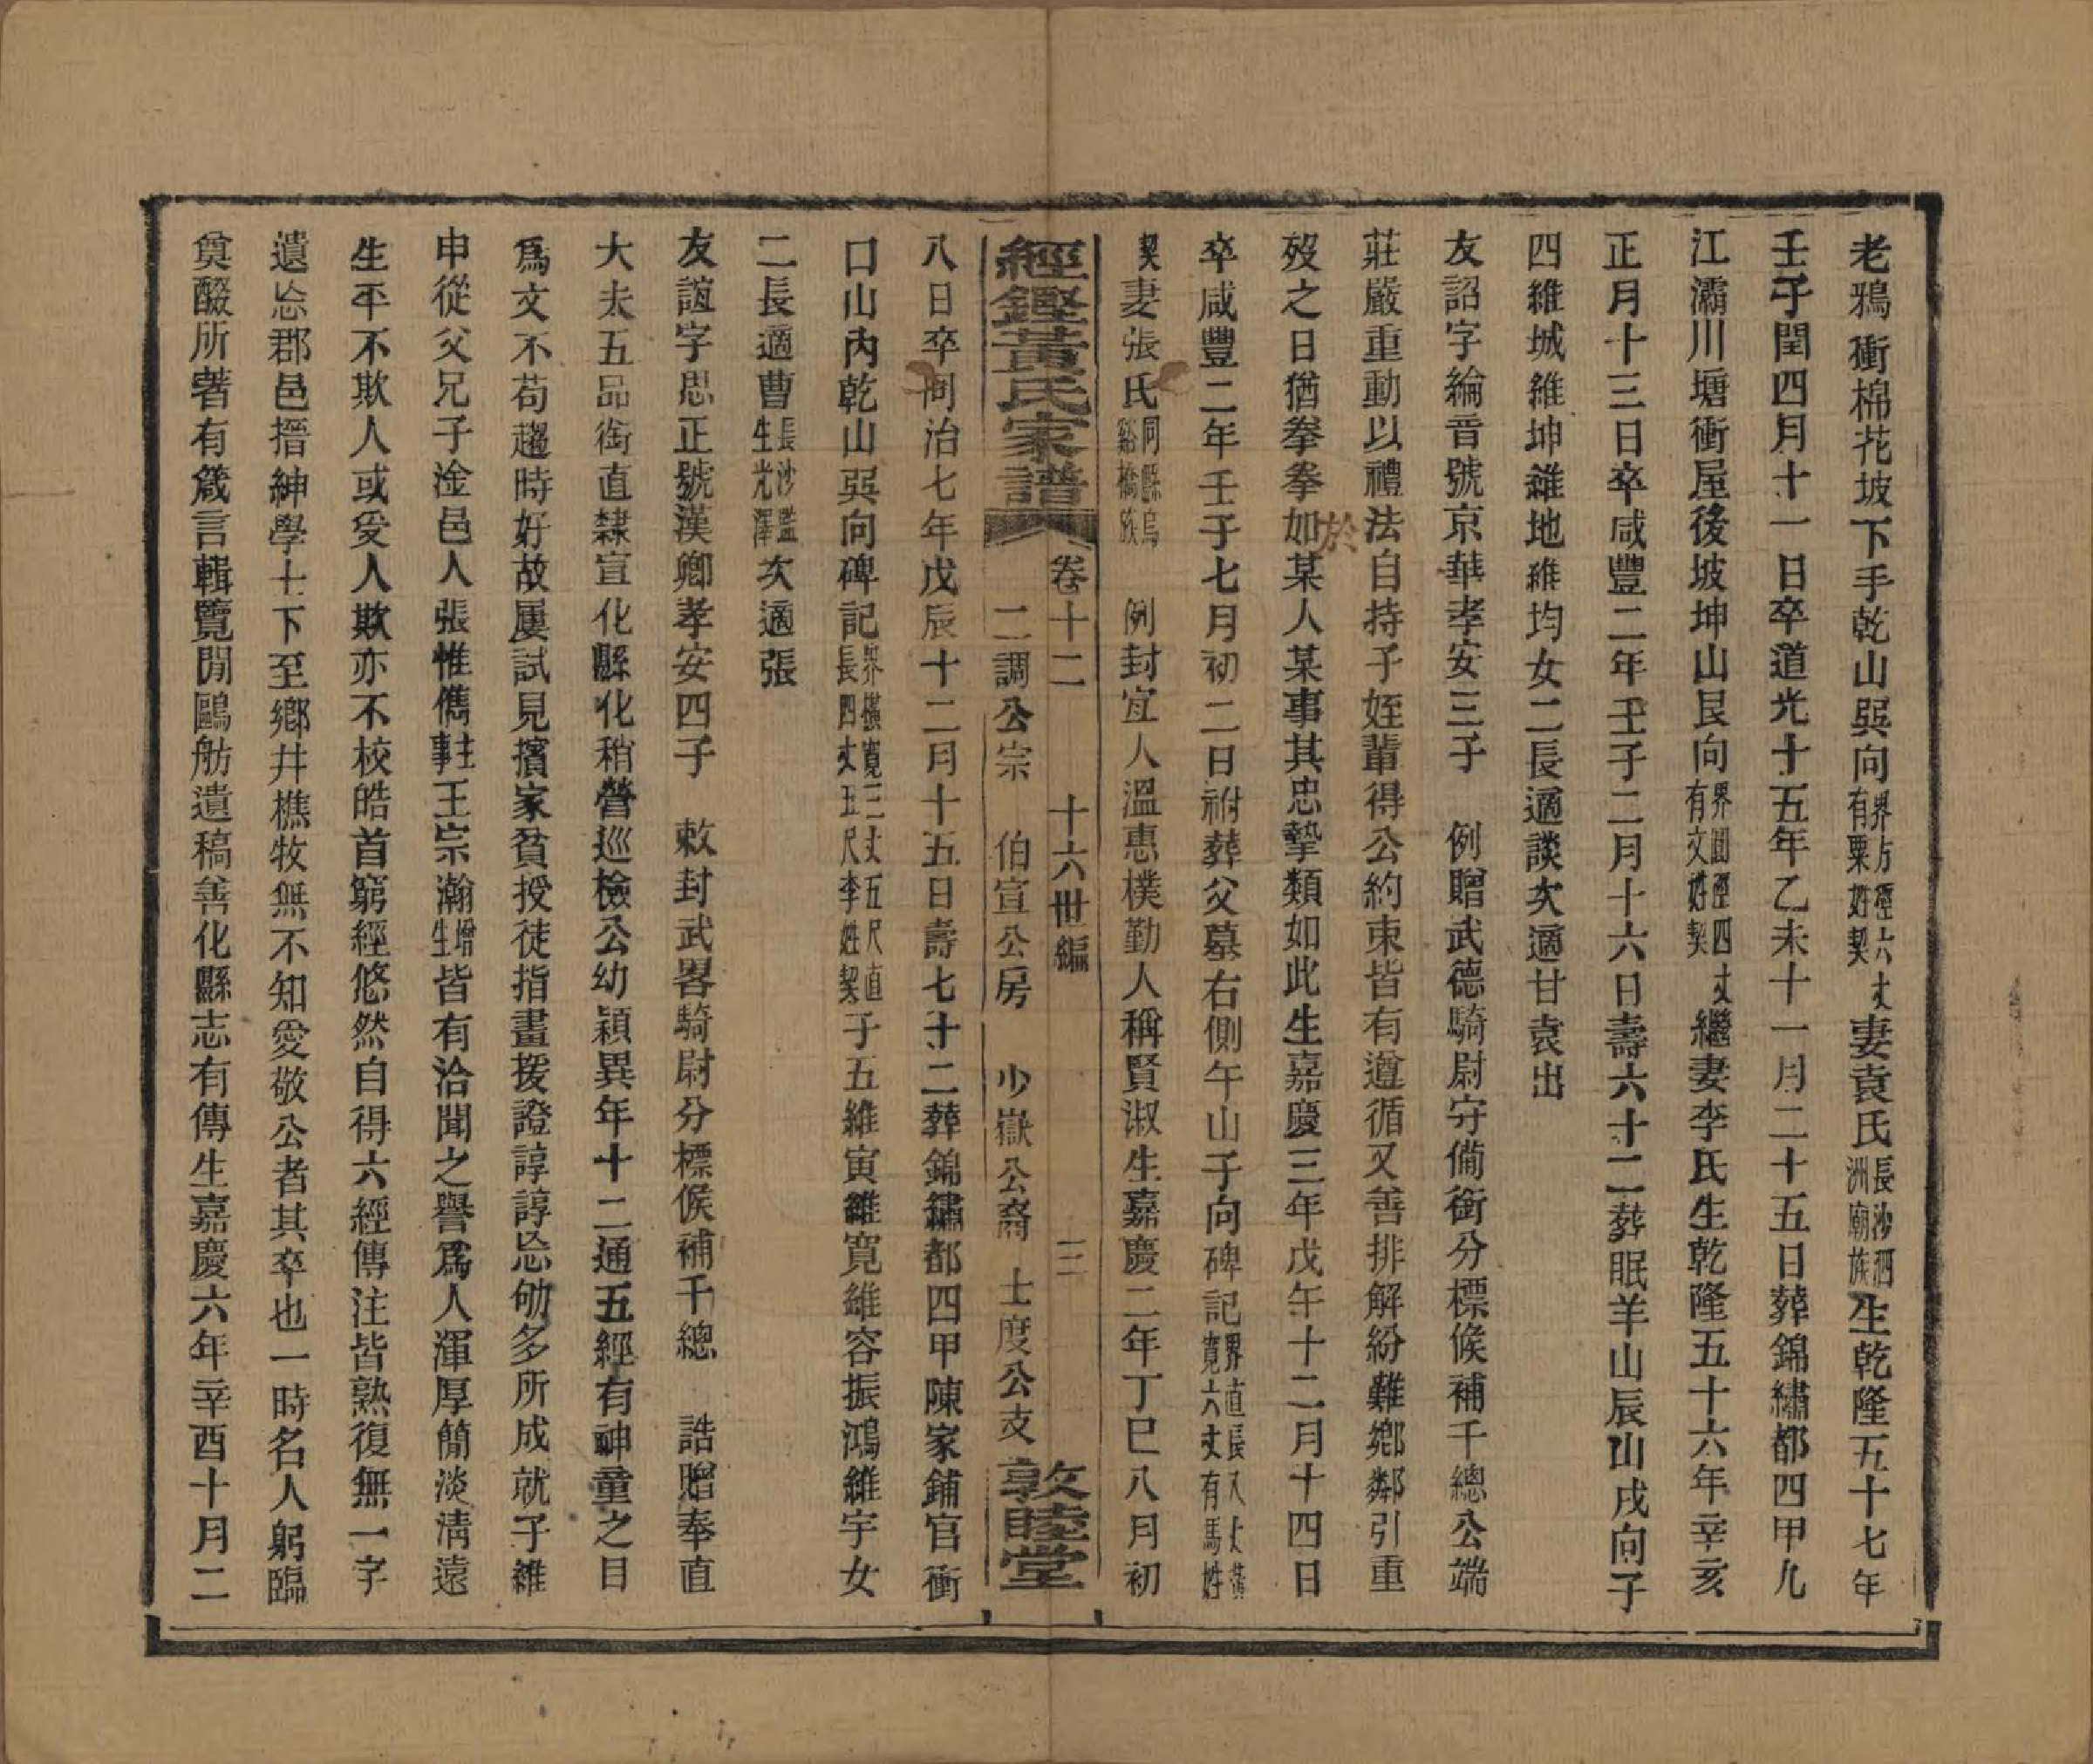 老鴉衝棉花坡下手乾山巽向界方徑六丈有粟姓契妻袁氏長沙泗洲廟族生乾隆五十七年
壬子閏四月十一日卒道光十五年乙未十一月二十五日葬錦繡都四甲九
江灞川塘衝屋後坡坤山艮向界圓徑四丈有文姓契繼妻李氏生乾隆五十六年辛亥
正月十三日卒咸豐二年壬子二月十六日壽六十二葬眠羊山辰山戌向子
四維城維坤維地維均女二長適談次適甘袁出
友詔字綸音號京華孝安三子　例贈武德騎尉守備銜分標候補千總公端
莊嚴重動以禮法自持子姪輩得公約束皆有遵循又善排解紛難鄉鄰引重
歿之日猶拳拳如某人某事其忠摯類如此生嘉慶三年戊午十二月十四日
於
卒咸豐二年壬子七月初二日祔葬父墓右側午山子向碑記界直長八丈橫寬六丈有馬姓
契妻張氏同縣烏谿橋族　例封宜人溫惠樸勤人稱賢淑生嘉慶二年丁巳八月初
經鏗黃氏家譜　卷十二　十六世編　三
二調公宗　伯宣公房　少嶽公裔　士度公支　敦睦堂
八日卒同治七年戊辰十二月十五日壽七十二葬錦繡都四甲陳家鋪官衝
口山內乾山巽向碑記界橫寬三丈五尺直長四丈五尺李姓契子五維寅維寬維容振鴻維宇女
二長適曹長沙監生光澤次適張
友誼字思正號漢卿孝安四子　敕封武畧騎尉分標候補千總　誥贈奉直
大夫五品銜直隸宣化縣化稍營巡檢公幼穎異年十二通五經有神童之目
爲文不苟趨時好故屢試見擯家貧授徒指畫援證諄諄忘劬多所成就子維
申從父兄子淦邑人張惟儁主事王宗瀚增生皆有洽聞之譽爲人渾厚簡淡淸遠
生平不欺人或受人欺亦不校皓首窮經悠然自得六經傳注皆熟復無一字
遺忘郡邑搢紳學士下至鄉井樵牧無不知愛敬公者其卒也一時名人躬臨
奠醊所著有箴言輯覽閒鷗舫遺稿善化縣志有傳生嘉慶六年辛酉十月二